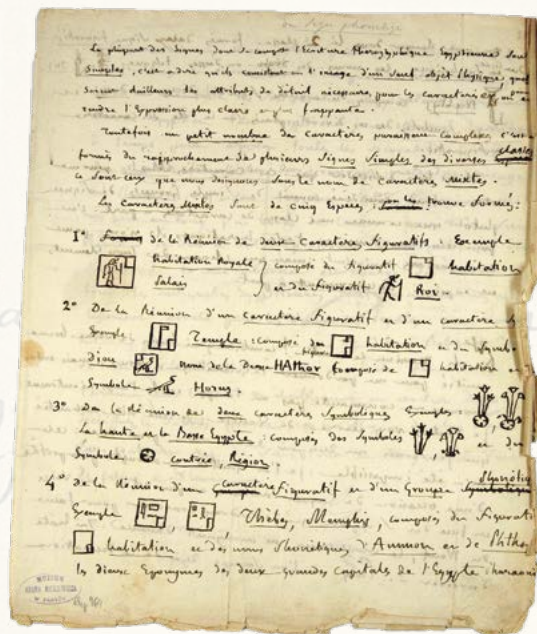 ou Signe phonétique
La plupart des Signes dont se compose l'Ecriture Hieroglyphique Egyptienne sont
Simples, c'est à dire qu'ils consistent en l'image d'un seul objet Physique, quels que
soient d'ailleurs les attributs de détail nécessaires, pour les caractériser ou pour en
rendre l'Expression plus claire et plus frappante.
Toutefois un petit nombre de Caractères paraissent complexes c'est à
formés du rapprochement de plusieurs Signes Simples des diverses classes
ce sont ceux que nous désignons sous le nom de Caractères Mixtes.
Les Caractères Mixtes sont de cinq Espèces : trouve formés :
1° de la Réunion de deux Caractères figuratifs : Exemple
habitation Royale composé du figuratif habitation
Palais et du figuratif Roi.
2° De la Réunion d'un Caractère figuratif et d'un caractère
Exemple Temple : composé du habitation et du Symbole
dieu nom de la Déesse HAthor composé de habitation et
Symbole Horus.
3° De la réunion de deux caractères Symboliques Exemples :
La haute et la Basse Egypte : composés des Symboles , et du
Symbole contrée, Région.
4° De la Réunion d'un figuratif et d'un Groupe Phonétique
Exemple , Thèbes, Memphis, composés du figuratif
habitation et des noms Phonétiques d'Ammon et de Phtha
les dieux Eponymes des deux grandes Capitales de l'Egypte